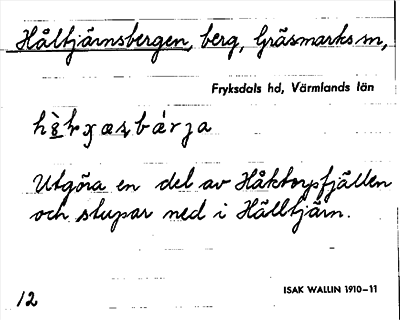 Håltjärnsbergen, berg, Gräsmarks sn,
Fryksdals hd, Värmlands län
Utgöra en del av Håktorpsfjällen
och stupar ned i Hålltjärn.
12
ISAK WALLIN 1910–11